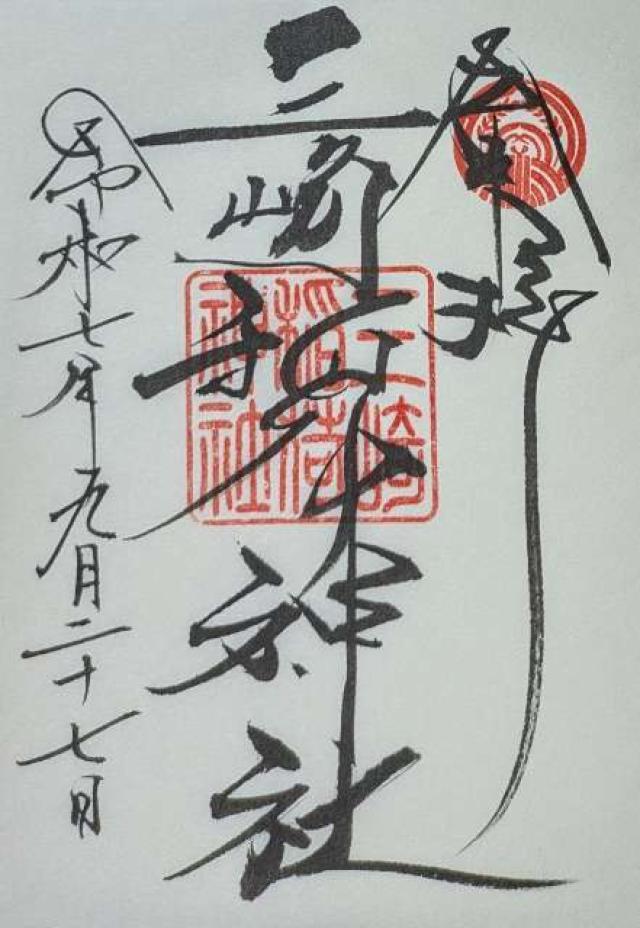 奉拝
三崎稲荷神社
三崎
稲荷
神社
令和七年九月二十七日